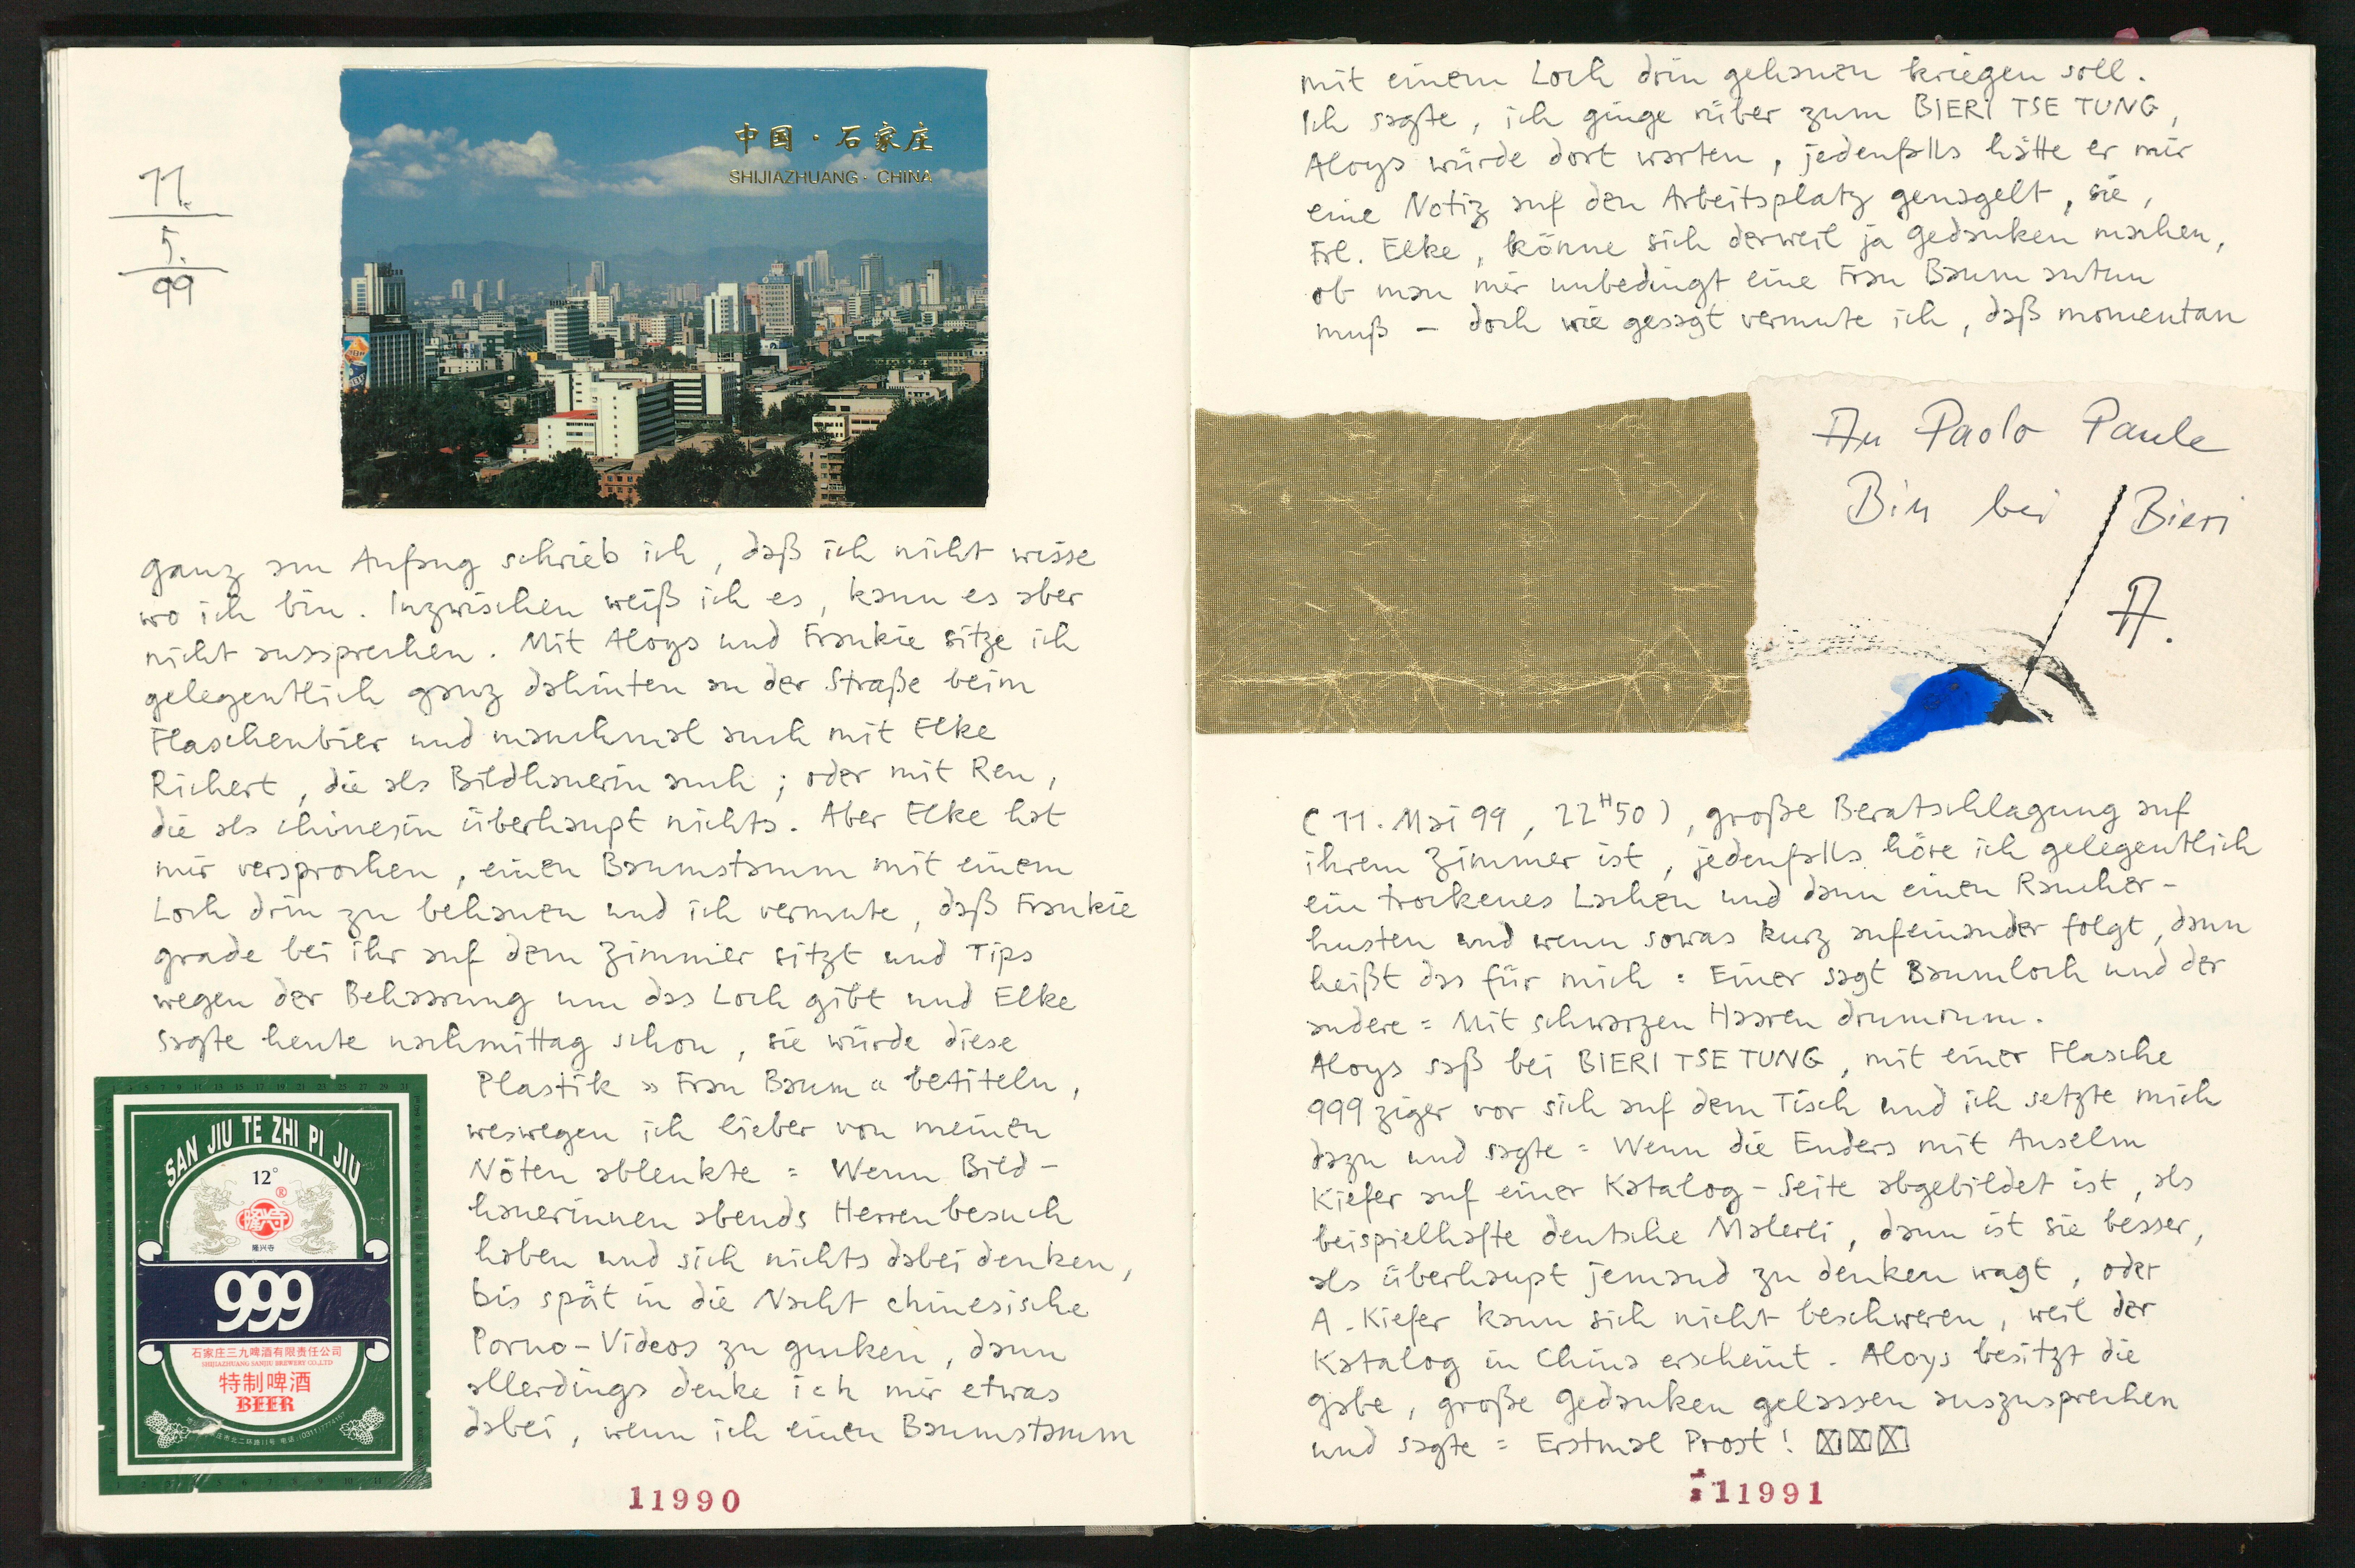 11.
5.
99
中国·石家庄
SHIJIAZHUANG · CHINA
ganz am Anfang schrieb ich, daß ich nicht wisse
wo ich bin. Inzwischen weiß ich es, kann es aber
nicht aussprechen. Mit Aloys und Frankie sitze ich
gelegentlich ganz dahinten an der Straße beim
Flaschenbier und manchmal auch mit Elke
Richert, die als Bildhauerin auch; oder mit Ren,
die als Chinesin überhaupt nichts. Aber Elke hat
mir versprochen, einen Baumstamm mit einem
Loch drin zu behauen und ich vermute, daß Frankie
grade bei ihr auf dem Zimmer sitzt und Tips
wegen der Behaarung um das Loch gibt und Elke
sagte heute nachmittag schon, sie würde diese
Plastik »Frau Baum« betiteln,
weswegen ich lieber von meinen
Nöten ablenkte = Wenn Bild-
hauerinnen abends Herrenbesuch
haben und sich nichts dabei denken,
bis spät in die Nacht chinesische
Porno-Videos zu gucken, dann
allerdings denke ich mir etwas
dabei, wenn ich einen Baumstamm
SAN JIU TE ZHI PI JIU
12°
®
隆兴寺
999
石家庄三九啤酒有限责任公司
SHIJIAZHUANG SANJIU BREWERY CO.,LTD
特制啤酒
BEER
11990
mit einem Loch drin gehauen kriegen soll.
Ich sagte, ich ginge rüber zum BIERI TSE TUNG,
Aloys würde dort warten, jedenfalls hätte er mir
eine Notiz auf den Arbeitsplatz genagelt, sie,
Frl. Elke, könne sich derweil ja Gedanken machen,
ob man mir unbedingt eine Frau Baum antun
muß – doch wie gesagt vermute ich, daß momentan
An Paolo Paule
Bin bei Bieri
A.
(11. Mai 99, 22H50), große Beratschlagung auf
ihrem Zimmer ist, jedenfalls höre ich gelegentlich
ein trockenes Lachen und dann einen Raucher-
husten und wenn sowas kurz aufeinander folgt, dann
heißt das für mich = Einer sagt Baumloch und der
andere = Mit schwarzen Haaren drumrum.
Aloys saß bei BIERI TSE TUNG, mit einer Flasche
999ziger vor sich auf dem Tisch und ich setzte mich
dazu und sagte = Wenn die Enders mit Anselm
Kiefer auf einer Katalog-Seite abgebildet ist, als
beispielhafte deutsche Malerei, dann ist sie besser,
als überhaupt jemand zu denken wagt, oder
A. Kiefer kann sich nicht beschweren, weil der
Katalog in China erscheint. Aloys besitzt die
Gabe, große Gedanken gelassen auszusprechen
und sagte = Erstmal Prost!
11991